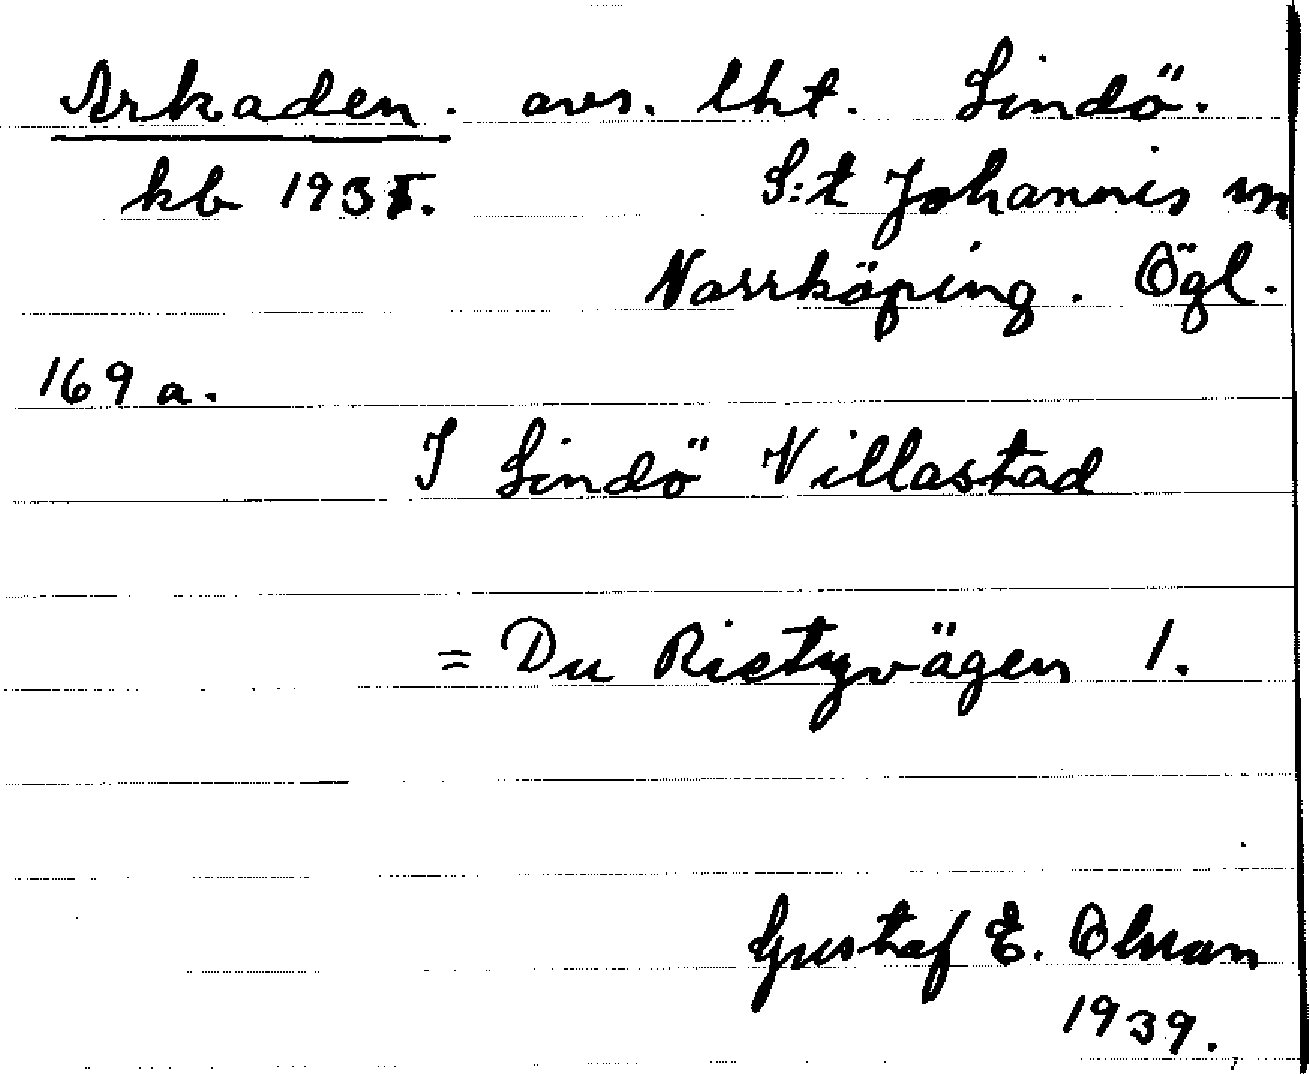 Arkaden. avs. lht. Lindö.
kb 1935. S:t Johannis sn
Norrköping. Ögl.
169 a.
I Lindö Villastad
= Du Rietzvägen 1.
Gustaf E. Olsson
1939.